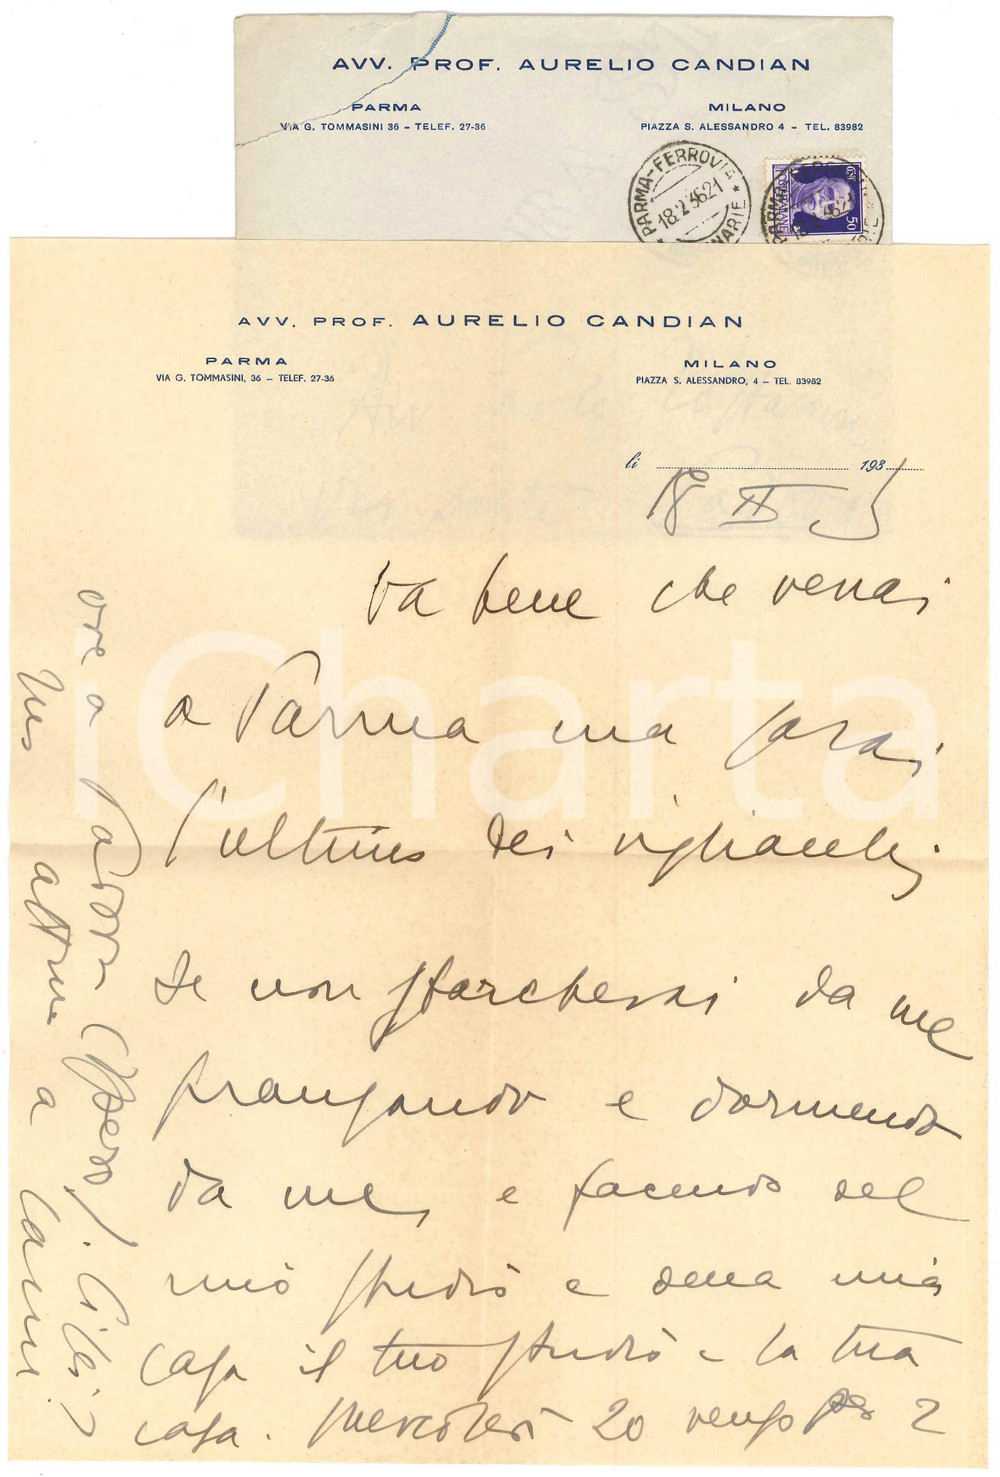 AVV. PROF. AURELIO CANDIAN
PARMA
VIA G. TOMMASINI 36 - TELEF. 27-36
MILANO
PIAZZA S. ALESSANDRO 4 - TEL. 83982
PARMA-FERROVIA
18.2.36 21
50
AVV. PROF. AURELIO CANDIAN
PARMA
VIA G. TOMMASINI, 36 - TELEF. 27-36
MILANO
PIAZZA S. ALESSANDRO, 4 - TEL. 83982
li 193
18 II 5
Va bene che verrai
a Parma ma sarai
l'ultimo dei vigliacchi
se non starcherai da me
pranzando e dormendo
da me, e facendo del
mio studio e della mia
casa il tuo studio e la tua
casa. Mercoledì 20 vengo per 2
ore a Padova (spero).
iCharta